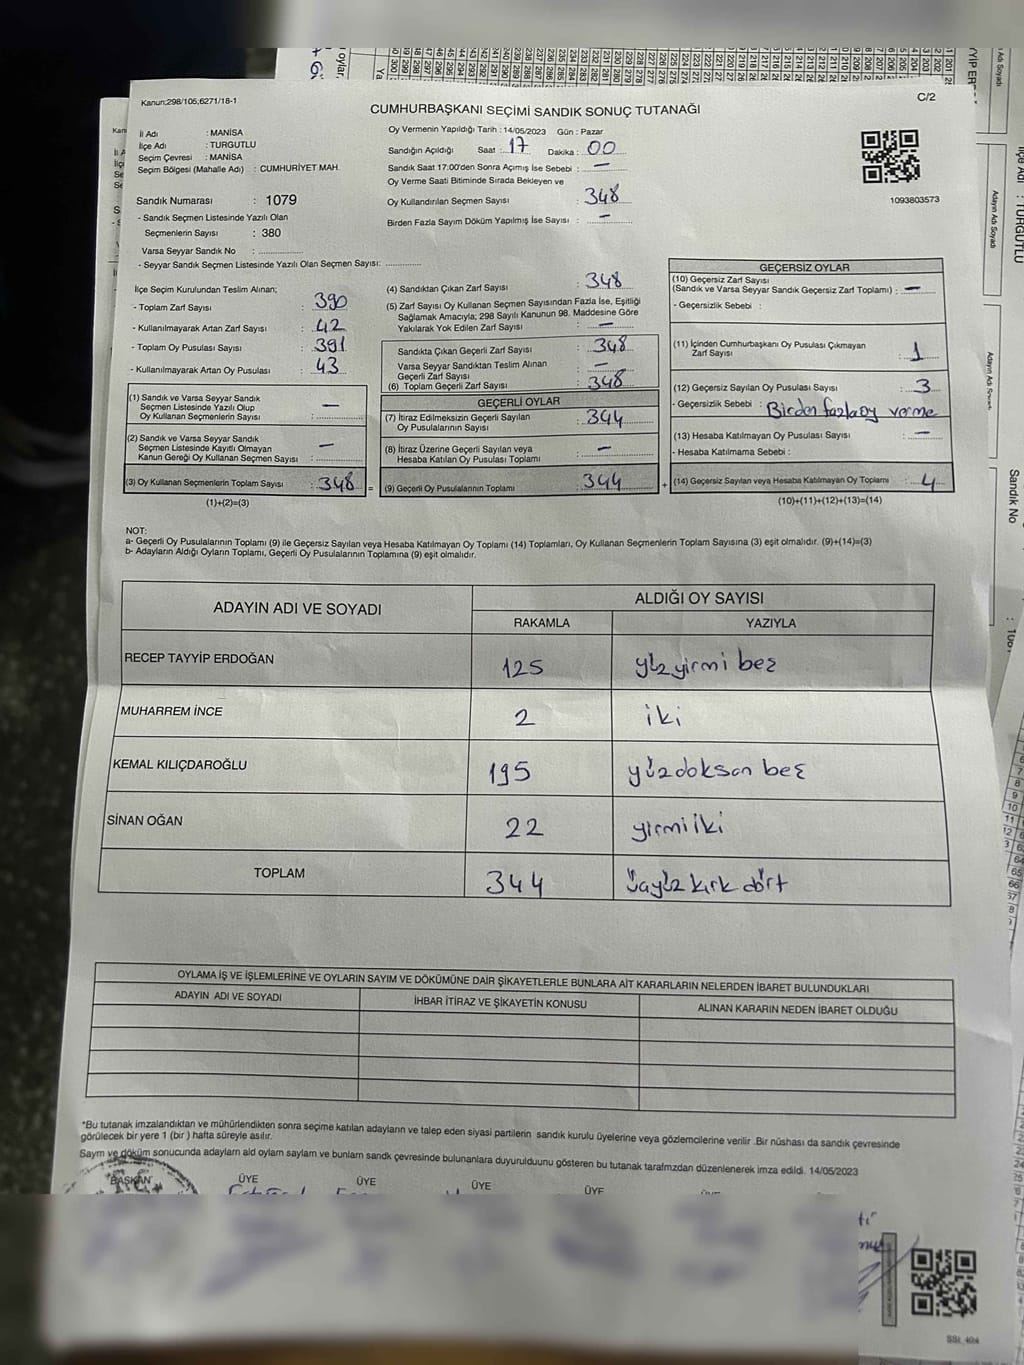 Kanun;298/105,6271/18-1
C/2
CUMHURBAŞKANI SEÇİMİ SANDIK SONUÇ TUTANAĞI
İl Adı : MANİSA
İlçe Adı : TURGUTLU
Seçim Çevresi : MANİSA
Seçim Bölgesi (Mahalle Adı) : CUMHURİYET MAH.
Sandık Numarası : 1079
- Sandık Seçmen Listesinde Yazılı Olan
Seçmenlerin Sayısı : 380
Varsa Seyyar Sandık No : ..............
- Seyyar Sandık Seçmen Listesinde Yazılı Olan Seçmen Sayısı: ..............
Oy Vermenin Yapıldığı Tarih : 14/05/2023 Gün : Pazar
Sandığın Açıldığı Saat : 17 Dakika : 00
Sandık Saat 17:00'den Sonra Açımış İse Sebebi : —
Oy Verme Saati Bitiminde Sırada Bekleyen ve
Oy Kullandırılan Seçmen Sayısı : 348
Birden Fazla Sayım Döküm Yapılmış İse Sayısı : —
1093803573
İlçe Seçim Kurulundan Teslim Alınan;
- Toplam Zarf Sayısı : 390
- Kullanılmayarak Artan Zarf Sayısı : 42
- Toplam Oy Pusulası Sayısı : 391
- Kullanılmayarak Artan Oy Pusulası : 43
(1) Sandık ve Varsa Seyyar Sandık
Seçmen Listesinde Yazılı Olup
Oy Kullanan Seçmenlerin Sayısı : —
(2) Sandık ve Varsa Seyyar Sandık
Seçmen Listesinde Kayıtlı Olmayan
Kanun Gereği Oy Kullanan Seçmen Sayısı : —
(3) Oy Kullanan Seçmenlerin Toplam Sayısı : 348 =
(1)+(2)=(3)
(4) Sandıktan Çıkan Zarf Sayısı : 348
(5) Zarf Sayısı Oy Kullanan Seçmen Sayısından Fazla İse, Eşitliği
Sağlamak Amacıyla; 298 Sayılı Kanunun 98. Maddesine Göre
Yakılarak Yok Edilen Zarf Sayısı : —
Sandıkta Çıkan Geçerli Zarf Sayısı : 348
Varsa Seyyar Sandıktan Teslim Alınan
Geçerli Zarf Sayısı : —
(6) Toplam Geçerli Zarf Sayısı : 348
GEÇERLİ OYLAR
(7) İtiraz Edilmeksizin Geçerli Sayılan
Oy Pusulalarının Sayısı : 344
(8) İtiraz Üzerine Geçerli Sayılan veya
Hesaba Katılan Oy Pusulası Toplamı : —
(9) Geçerli Oy Pusulalarının Toplamı : 344 +
GEÇERSİZ OYLAR
(10) Geçersiz Zarf Sayısı
(Sandık ve Varsa Seyyar Sandık Geçersiz Zarf Toplamı) : —
- Geçersizlik Sebebi :
(11) İçinden Cumhurbaşkanı Oy Pusulası Çıkmayan
Zarf Sayısı : 1
(12) Geçersiz Sayılan Oy Pusulası Sayısı : 3
- Geçersizlik Sebebi : Birden fazla oy verme
(13) Hesaba Katılmayan Oy Pusulası Sayısı : —
- Hesaba Katılmama Sebebi :
(14) Geçersiz Sayılan veya Hesaba Katılmayan Oy Toplamı : 4
(10)+(11)+(12)+(13)=(14)
NOT:
a- Geçerli Oy Pusulalarının Toplamı (9) ile Geçersiz Sayılan veya Hesaba Katılmayan Oy Toplamı (14) Toplamları, Oy Kullanan Seçmenlerin Toplam Sayısına (3) eşit olmalıdır. (9)+(14)=(3)
b- Adayların Aldığı Oyların Toplamı, Geçerli Oy Pusulalarının Toplamına (9) eşit olmalıdır.
ADAYIN ADI VE SOYADI ALDIĞI OY SAYISI
RAKAMLA YAZIYLA
RECEP TAYYİP ERDOĞAN 125 yüz yirmi beş
MUHARREM İNCE 2 iki
KEMAL KILIÇDAROĞLU 195 yüz doksan beş
SİNAN OĞAN 22 yirmi iki
TOPLAM 344 üçyüz kırk dört
OYLAMA İŞ VE İŞLEMLERİNE VE OYLARIN SAYIM VE DÖKÜMÜNE DAİR ŞİKAYETLERLE BUNLARA AİT KARARLARIN NELERDEN İBARET BULUNDUKLARI
ADAYIN ADI VE SOYADI İHBAR İTİRAZ VE ŞİKAYETİN KONUSU ALINAN KARARIN NEDEN İBARET OLDUĞU
*Bu tutanak imzalandıktan ve mühürlendikten sonra seçime katılan adayların ve talep eden siyasi partilerin sandık kurulu üyelerine veya gözlemcilerine verilir .Bir nüshası da sandık çevresinde
görülecek bir yere 1 (bir ) hafta süreyle asılır.
Sayım ve döküm sonucunda adayların ald oylam saylam ve bunlam sandk çevresinde bulunanlara duyurulduunu gösteren bu tutanak tarafmzdan düzenlenerek imza edildi. 14/05/2023
BAŞKAN ÜYE ÜYE ÜYE ÜYE